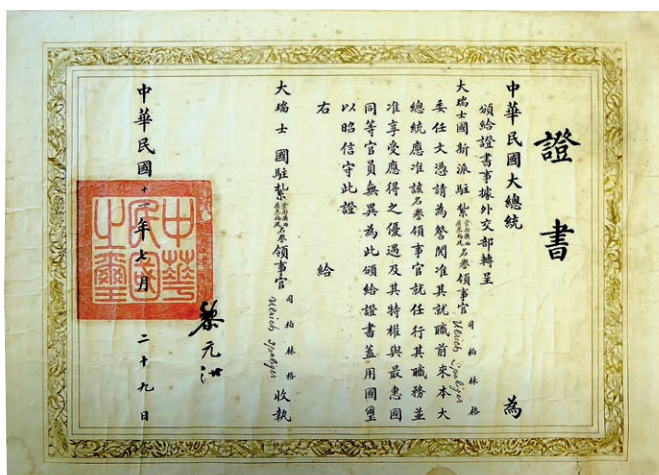 證書
中華民國大總統 為
頒給證書事據外交部轉呈
大瑞士國新派駐紮雲南廣西廣東福建名譽領事官司柏林格 Ulrich Spalinger
委任文憑請為詧閱准其就職前來本大
總統應准該名譽領事官就任行其職務並
准享受應得之優遇及其特權與最惠國
同等官員無異為此頒給證書蓋用國璽
以昭信守此證
右 給
大瑞士 國駐紮雲南廣西廣東福建名譽領事官司柏林格 Ulrich Spalinger 收執
黎元洪
中華民國十一年七月二十九日
中華民國之璽